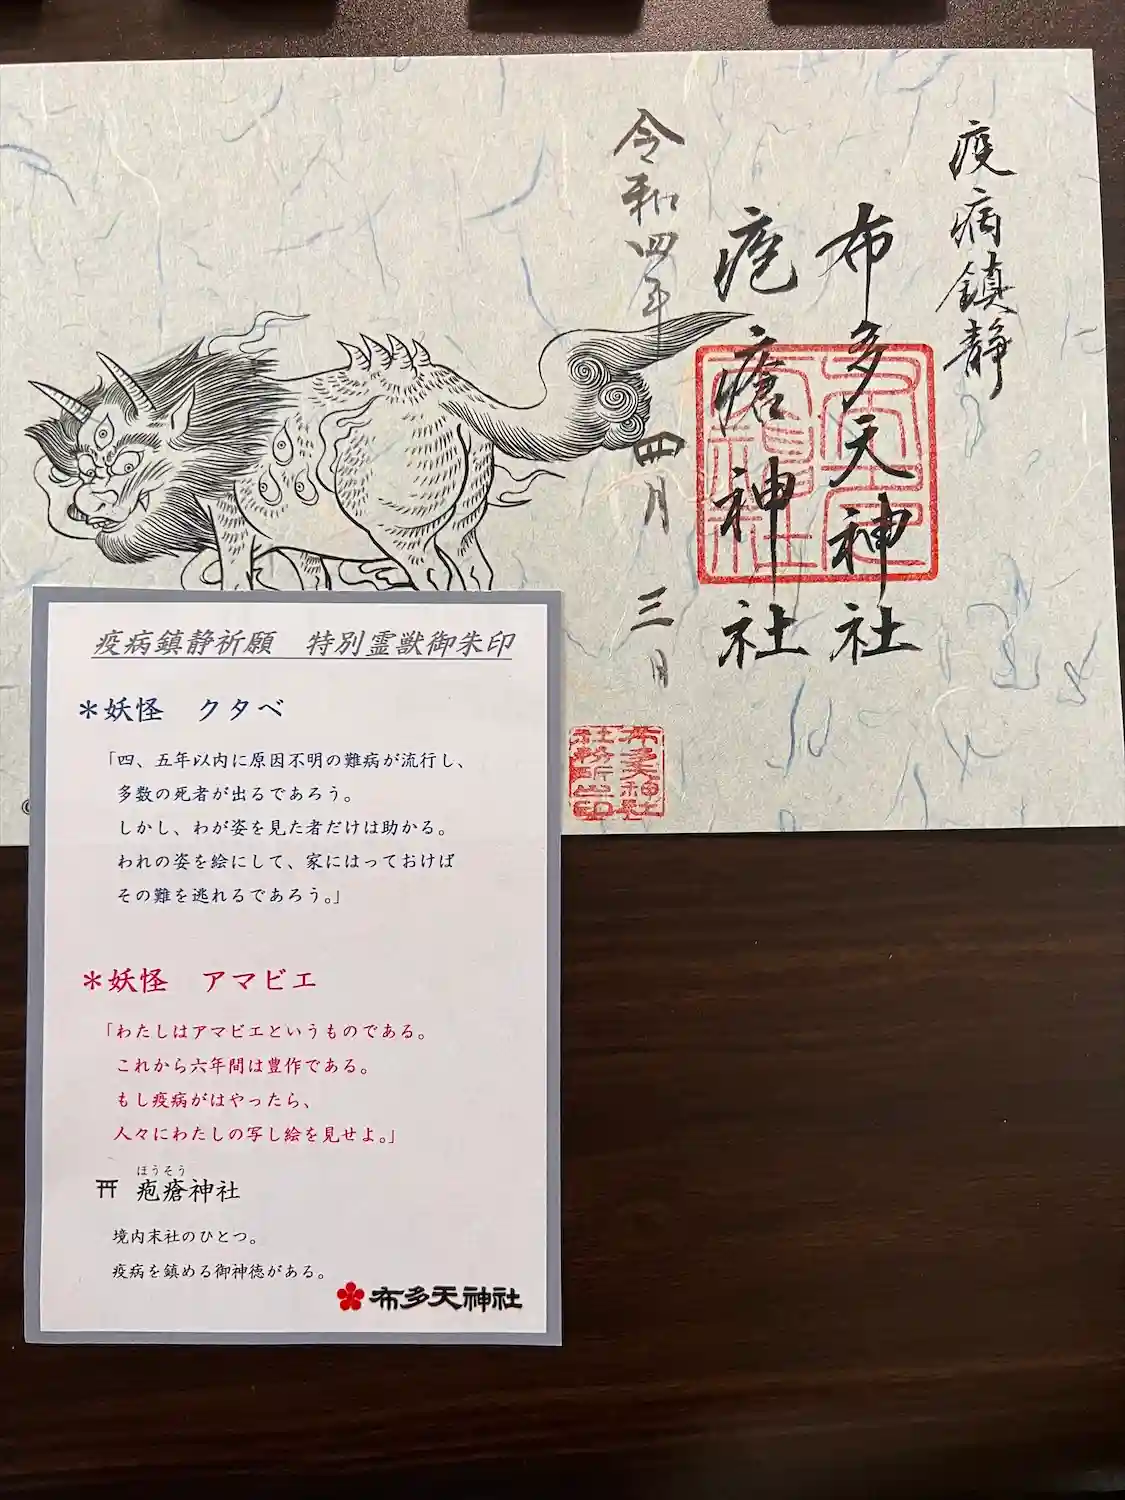 疫病鎮静
布多天神社
疱瘡神社
令和四年 四月 三日
布多天神社
社務所之印
疫病鎮静祈願 特別霊獣御朱印
＊妖怪 クタベ
「四、五年以内に原因不明の難病が流行し、
多数の死者が出るであろう。
しかし、わが姿を見た者だけは助かる。
われの姿を絵にして、家にはっておけば
その難を逃れるであろう。」
＊妖怪 アマビエ
「わたしはアマビエというものである。
これから六年間は豊作である。
もし疫病がはやったら、
人々にわたしの写し絵を見せよ。」
ほうそう
疱瘡神社
境内末社のひとつ。
疫病を鎮める御神徳がある。
布多天神社